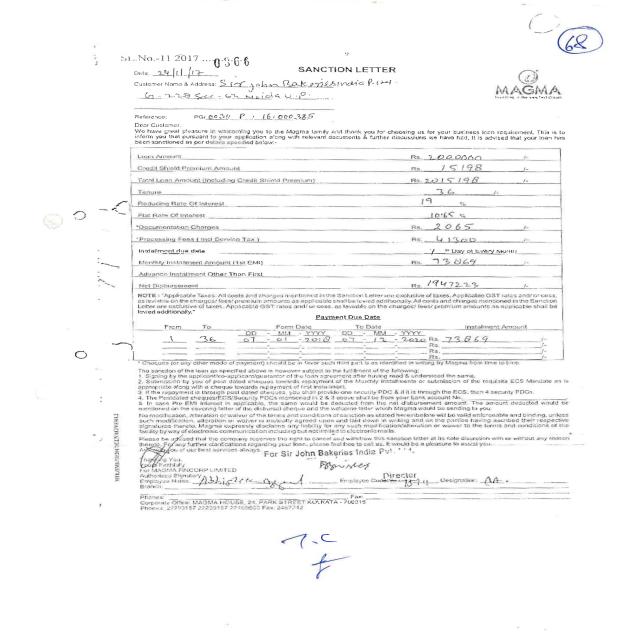 68
SL.No.-11 2017 ... 0366
SANCTION LETTER
Date: 24/11/17
Customer Name & Address: Sir John Bakeries India P. Ltd
G-228 Sec-63 Noida U.P.
MAGMA
Reference: PG/0030/P/16/000385
Dear Customer,
We have great pleasure in welcoming you to the Magma family and thank you for choosing us for your business loan requirement. This is to
inform you that pursuant to your application along with relevant documents & further discussions we have had, it is advised that your loan has
been sanctioned as per details specified below:-
Loan Amount Rs. 2000000 /-
Credit Shield Premium Amount Rs. 15198 /-
Total Loan Amount (Including Credit Shield Premium) Rs. 2015198 /-
Tenure 36 /-
Reducing Rate Of Interest 19 %
Flat Rate Of Interest 10.65 %
*Documentation Charges Rs. 2065 /-
*Processing Fees ( Incl Service Tax ) Rs. 41300 /-
Installment due date Day of Every Month
Monthly Installment Amount (1st EMI) Rs. 73869 /-
Advance Installment Other Than First
Net Disbursement Rs. 1947223 /-
NOTE : "Applicable Taxes: All costs and charges mentioned in the Sanction Letter are exclusive of taxes. Applicable GST rates and/or cess,
as leviable on the charges/ fees/ premium amounts as applicable shall be levied additionally. All costs and charges mentioned in the Sanction
Letter are exclusive of taxes. Applicable GST rates and/ or cess, as leviable on the charges/ fees/ premium amounts as applicable shall be
levied additionally."
Payment Due Date
From To Form Date To Date Instalment Amount
DD - MM - YYYY DD - MM - YYYY
1 36 07 - 01 - 2018 07 - 12 - 2020 Rs. 73869 /-
Rs. /-
Rs. /-
Rs. /-
* Cheques (or any other mode of payment) should be in favor such third part is as identified in writing by Magma from time to time.
The sanction of the loan as specified above is however subject to the fulfilment of the following:
1. Signing by the applicant/co-applicant/guarantor of the loan agreement after having read & understood the same.
2. Submission by you of post dated cheques towards repayment of the Monthly Installments or submission of the requisite ECS Mandate as is
appropriate along with a cheque towards repayment of first instalment.
3. If the repayment is through post dated cheques, you shall provide one security PDC & if it is through the ECS, then 4 security PDCs.
4. The Postdated cheques/ECS/Security PDCs mentioned in 2 & 3 above shall be from your bank account No.
5. In case Pre EMI interest is applicable, the same would be deducted from the net disbursement amount. The amount deducted would be
mentioned on the covering letter of the disbursal cheque and the welcome letter which Magma would be sending to you.
No modification, Alteration or waiver of the terms and conditions of sanction as stated herein before will be valid enforceable and binding, unless
such modification, alteration or waiver is mutually agreed upon and laid down in writing and on the parties having ascribed their respective
signatures thereto. Magma expressly disclaims any liability for any such modification/alteration or waiver to the terms and conditions of the
facility by way of electronic communication including but not limited to electronic mails.
Please be advised that the company reserves the right to cancel and withdraw this sanction letter at its sole discretion with or without any reason
thereto. For any further clarifications regarding your loan, please feel free to call us. It would be a pleasure to assist you.
Assuring you of our best services always.
For Sir John Bakeries India Pvt.
Thanking You,
Yours Faithfully
For MAGMA FINCORP LIMITED
Director
Authorised Signatory
Employee Name: Employee Code: Designation:
Branch:
Phones: Fax:
Corporate Office: MAGMA HOUSE, 24, PARK STREET KOLKATA - 700016
T.C